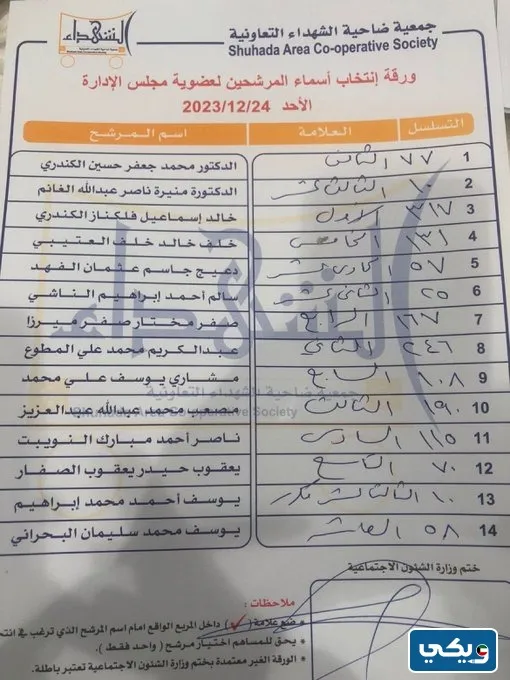 الشهداء
جمعية ضاحية الشهداء التعاونية
Shuhada Area Co-operative Society
ورقة إنتخاب أسماء المرشحين لعضوية مجلس الإدارة
الأحد 2023/12/24
التسلسل العلامة اسم المرشح
1 ٧٧ الثامن الدكتور محمد جعفر حسين الكندري
2 ١٠ الثالث عشر الدكتورة منيرة ناصر عبدالله الغانم
3 ٣١٧ الأول خالد إسماعيل فلكناز الكندري
4 ١٣١ الخامس خلف خالد خلف العتيبي
5 ٥٧ الحادي عشر دعيج جاسم عثمان الفهد
6 ٢٥ الثاني عشر سالم أحمد إبراهيم الناشي
7 ١٦٧ الرابع صفر مختار صفر ميرزا
8 ٢٤٦ الثاني عبدالكريم محمد علي المطوع
9 ١٠٨ السابع مشاري يوسف علي محمد
10 ١٩٠ الثالث مصعب محمد عبدالله عبدالعزيز
11 ١١٥ السادس ناصر أحمد مبارك النويبت
12 ٧٠ التاسع يعقوب حيدر يعقوب الصفار
13 ١٠ الثالث عشر مكرر يوسف أحمد محمد إبراهيم
14 ٥٨ العاشر يوسف محمد سليمان البحراني
الشهداء
جمعية ضاحية الشهداء التعاونية
Shuhada Area Co-operative Society
ختم وزارة الشئون الاجتماعية
ملاحظات:
ضع علامة (✓) داخل المربع الواقع امام اسم المرشح الذي ترغب في
يحق للمساهم اختيار مرشح (واحد فقط).
الورقة الغير معتمدة بختم وزارة الشئون الاجتماعية تعتبر باطلة.
ويكي